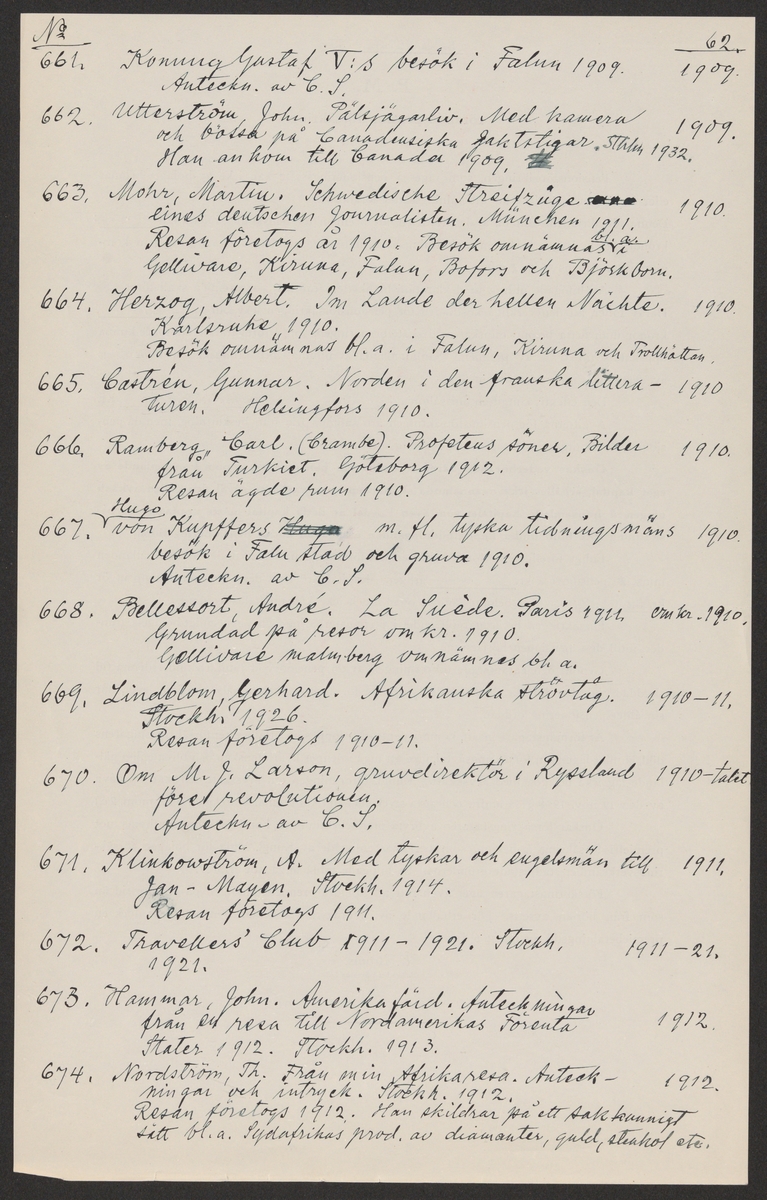 No 62.
661. Konung Gustaf V:s besök i Falun 1909. 1909.
Anteckn. av C. S.
662. Utterström, John. Pälsjägarliv. Med kamera 1909.
och bössa på Canadensiska jaktstigar. Sthlm 1932.
Han ankom till Canada 1909.
663. Mohr, Martin. Schwedische Streifzüge 1910.
eines deutschen Journalisten. München 1911.
Resan företogs år 1910. Besök omnämnas bl. a. i
Gellivare, Kiruna, Falun, Bofors och Björkborn.
664. Herzog, Albert. Im Lande der hellen Nächte. 1910.
Karlsruhe 1910.
Besök omnämnas bl. a. i Falun, Kiruna och Trollhättan.
665. Castrén, Gunnar. Norden i den franska littera- 1910
turen. Helsingfors 1910.
666. Ramberg, Carl. (Crambé). Profetens söner. Bilder 1910.
från Turkiet. Göteborg 1912.
Resan ägde rum 1910.
667. Hugo von Kupffers m. fl. tyska tidningsmäns 1910.
besök i Falu stad och gruva 1910.
Anteckn. av C. S.
668. Bellessort, André. La Suède. Paris 1911. omkr. 1910.
Grundad på resor omkr. 1910.
Gellivare malmberg omnämnes bl. a.
669. Lindblom, Gerhard. Afrikanska strövtåg. 1910-11.
Stockh. 1926.
Resan företogs 1910-11.
670. Om M. J. Larson, gruvdirektör i Ryssland 1910-talet
före revolutionen.
Anteckn. av C. S.
671. Klinkowström, A. Med tyskar och engelsmän till 1911.
Jan-Mayen. Stockh. 1914.
Resan företogs 1911.
672. Travellers' Club 1911-1921. Stockh. 1911-21.
1921.
673. Hammar, John. Amerikafärd. Anteckningar
från en resa till Nordamerikas Förenta 1912.
Stater 1912. Stockh. 1913.
674. Nordström, Th. Från min Afrikaresa. Anteck- 1912.
ningar och intryck. Stockh. 1912.
Resan företogs 1912. Han skildrar på ett sakkunnigt
sätt bl. a. Sydafrikas prod. av diamanter, guld, stenkol etc.